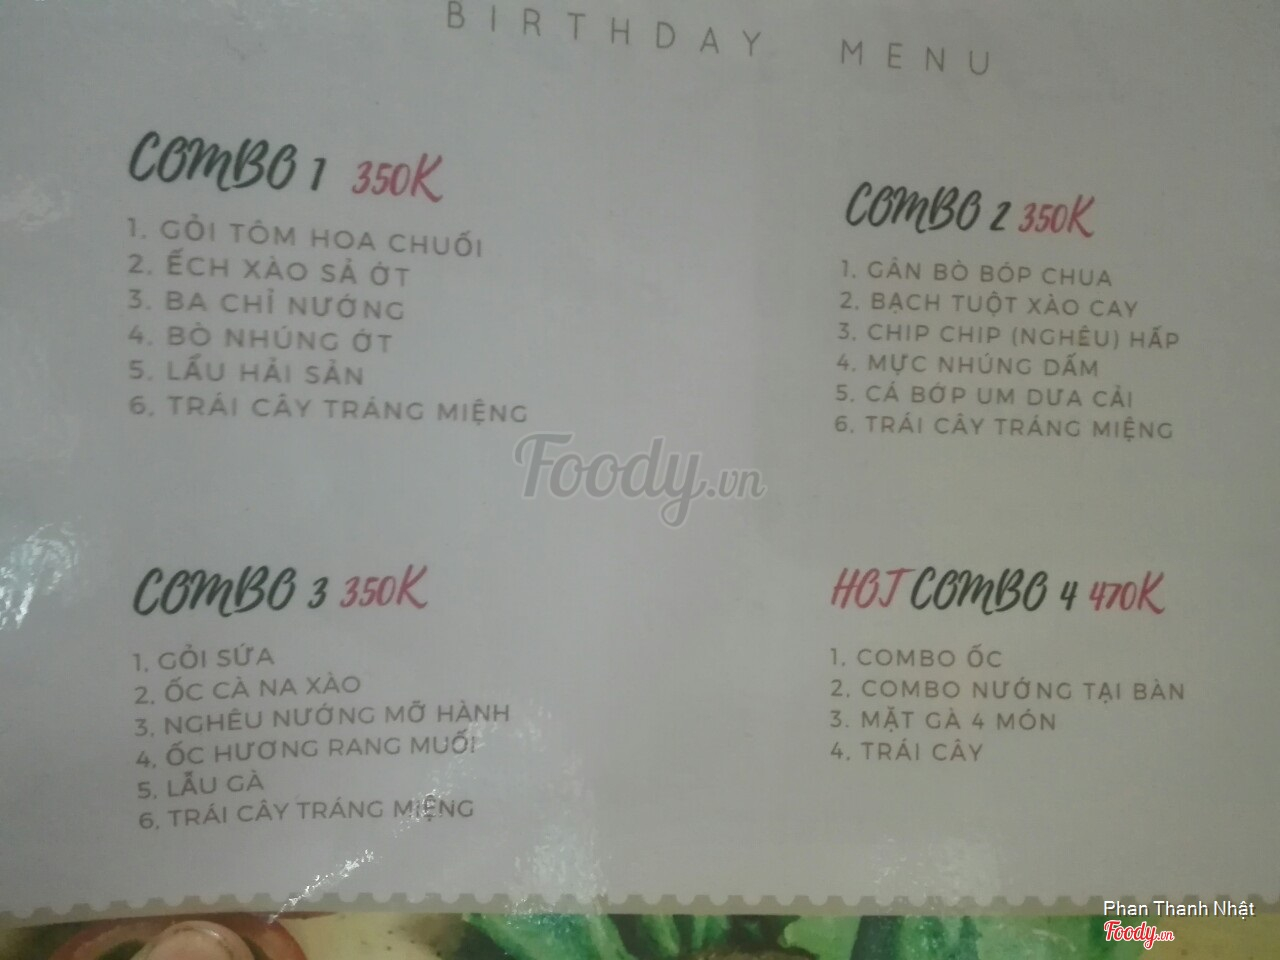 BIRTHDAY MENU
COMBO 1 350K
1. GỎI TÔM HOA CHUỐI
2. ẾCH XÀO SẢ ỚT
3. BA CHỈ NƯỚNG
4. BÒ NHÚNG ỚT
5. LẨU HẢI SẢN
6. TRÁI CÂY TRÁNG MIỆNG
COMBO 2 350K
1. GÂN BÒ BÓP CHUA
2. BẠCH TUỘT XÀO CAY
3. CHIP CHIP (NGHÊU) HẤP
4. MỰC NHÚNG DẤM
5. CÁ BỚP UM DƯA CẢI
6. TRÁI CÂY TRÁNG MIỆNG
Foody.vn
COMBO 3 350K
1. GỎI SỨA
2. ỐC CÀ NA XÀO
3. NGHÊU NƯỚNG MỠ HÀNH
4. ỐC HƯƠNG RANG MUỐI
5. LẨU GÀ
6. TRÁI CÂY TRÁNG MIỆNG
HOT COMBO 4 470K
1. COMBO ỐC
2. COMBO NƯỚNG TẠI BÀN
3. MẶT GÀ 4 MÓN
4. TRÁI CÂY
Phan Thanh Nhật
Foody.vn